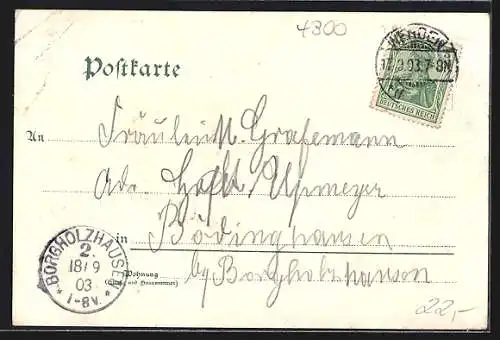 4300
WERDEN
17.9.03.7-8N.
DEUTSCHES REICH
Postkarte
An Fräulein Grafemann
Adr.
in Bödinghausen
Wohnung
(Straße und Hausnummer)
by Borgholzhausen
BORGHOLZHAUSEN
2.
18/9
03
* 1-8V. *
22,-